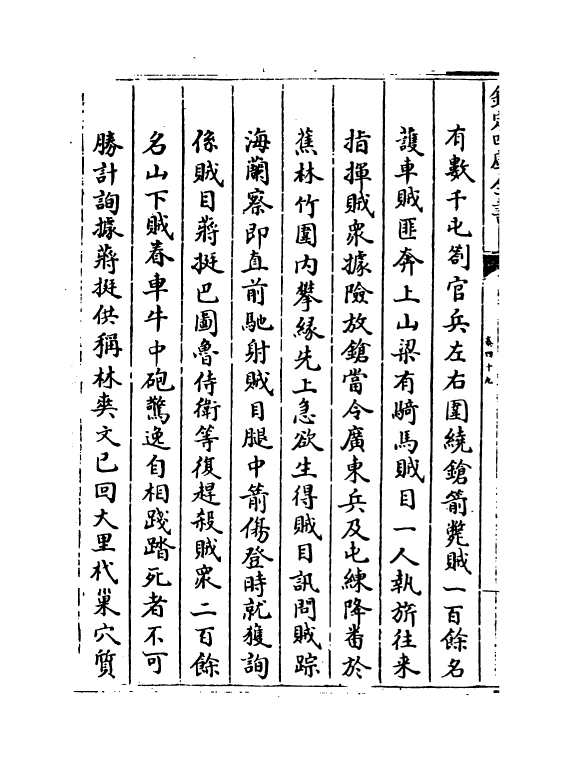 欽定四庫全書
卷四十九
有數千屯劄官兵左右圍繞鎗箭斃賊一百餘名
護車賊匪奔上山梁有騎馬賊目一人執旂往来
指揮賊衆據險放鎗當令廣東兵及屯練降畨於
蕉林竹圍内攀緣先上急欲生得賊目訊問賊踪
海蘭察即直前馳射賊目腿中箭傷登時就獲詢
係賊目蔣挺巴圖魯侍衛等復趕殺賊衆二百餘
名山下賊眷車牛中砲驚逸自相踐踏死者不可
勝計詢據蔣挺供稱林爽文已回大里杙巢穴質